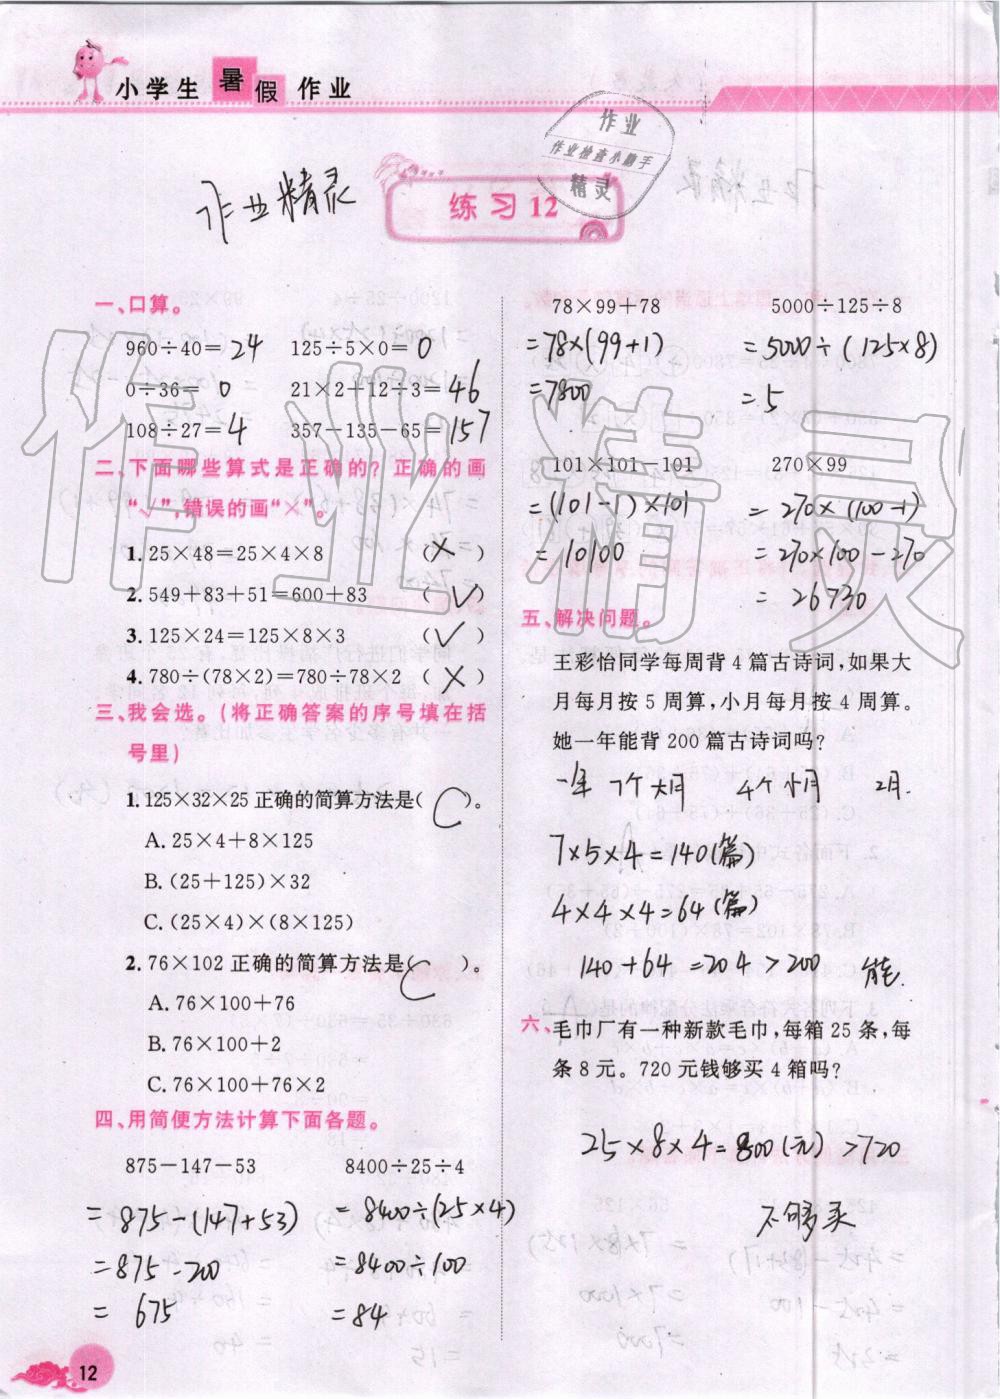 小学生暑假作业
作业
作业检查小帮手
精灵
作业精灵
练习12
一、口算。
960÷40=24 125÷5×0=0
0÷36=0 21×2+12÷3=46
108÷27=4 357-135-65=157
二、下面哪些算式是正确的?正确的画
“√”,错误的画“×”。
1. 25×48=25×4×8 (×)
2. 549+83+51=600+83 (√)
3. 125×24=125×8×3 (√)
4. 780÷(78×2)=780÷78×2 (×)
三、我会选。(将正确答案的序号填在括
号里)
1. 125×32×25正确的简算方法是( C )。
A. 25×4+8×125
B. (25+125)×32
C. (25×4)×(8×125)
2. 76×102正确的简算方法是( C )。
A. 76×100+76
B. 76×100+2
C. 76×100+76×2
四、用简便方法计算下面各题。
875-147-53 8400÷25÷4
=875-(147+53) =8400÷(25×4)
=875-200 =8400÷100
=675 =84
78×99+78 5000÷125÷8
=78×(99+1) =5000÷(125×8)
=7800 =5
101×101-101 270×99
=(101-1)×101 =270×(100-1)
=10100 =270×100-270
=26730
五、解决问题。
王彩怡同学每周背4篇古诗词,如果大
月每月按5周算,小月每月按4周算。
她一年能背200篇古诗词吗?
一年 7个大月 4个小月 2月.
7×5×4=140(篇)
4×4×4=64(篇)
140+64=204>200 能.
六、毛巾厂有一种新款毛巾,每箱25条,每
条8元。720元钱够买4箱吗?
25×8×4=800(元)>720
不够买
12
作业精灵